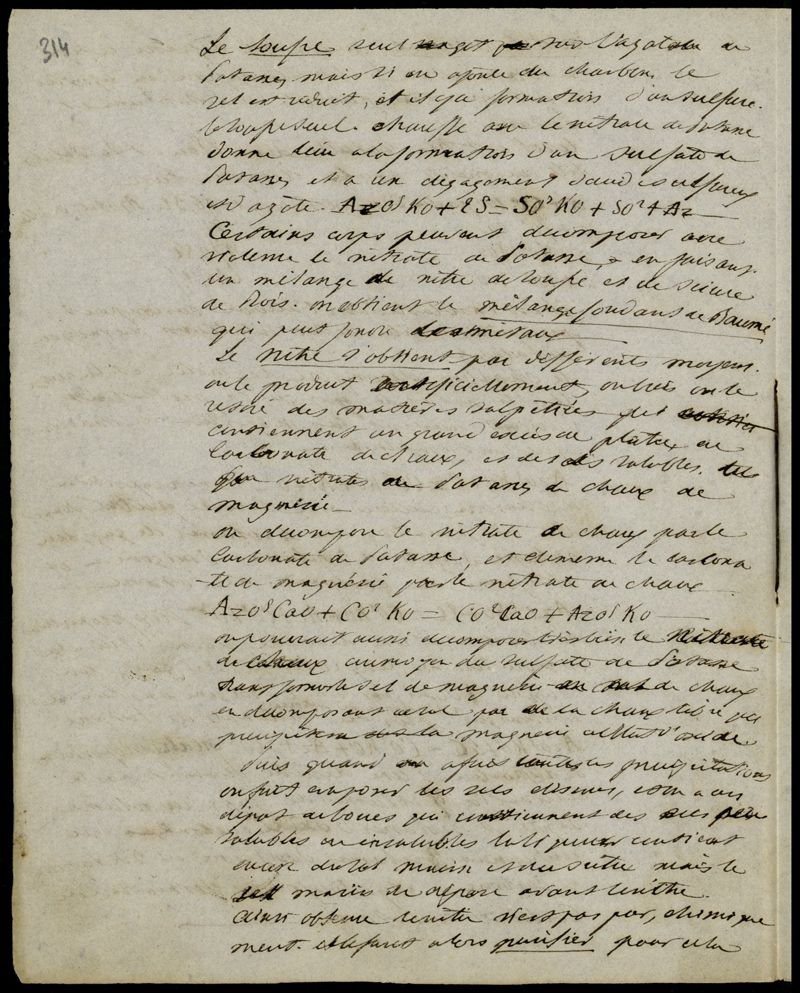 314
Le soufre seul n'agit pas sur l'azotate de
Potasse, mais si on ajoute du charbon, le
sel est réduit, et il y a formation d'un sulfure.
le soufre seul chauffé avec le nitrate de Potasse
donne lieu a la formation d'un sulfate de
Potasse, et a un dégagement d'acide sulfureux
et d'azote. AzO⁵KO + 2S = SO³KO + SO² + Az
Certains corps peuvent décomposer avec
violence le nitrate de Potasse, en faisant
un mélange de nitre de soufre et de sciure
de Bois. on obtient le mélange fondant de Baumé
qui peut fondre des métaux
Le nitre s'obtient par différents moyens.
on le produit artificiellement, ou bien on le
retire des matières salpêtrées qui
contiennent un grand excès de platre de
Carbonate de chaux, et des sels solubles. tels
que nitrates de Potasse, de chaux de
magnésie
on décompose le nitrate de chaux par le
Carbonate de Potasse, et de même le carbona
-te de magnésie par le nitrate de chaux
AzO⁵CaO + CO²KO = CO²CaO + AzO⁵KO
on pourrait aussi décomposer très bien le Nitrate
de chaux au moyen du sulfate de Potasse
transformer le sel de magnésie en sel de chaux
en décomposant celui par de la chaux libre qui
précipitera la magnésie a l'état d'oxide.
Puis quand après toutes ces précipitations
on fait évaporer les sels obtenus, on a un
dépot de boues qui contiennent des sels peu
solubles ou insolubles contient
encore du sel marin et du nitre mais le
sel marin se dépose avant le nitre
ainsi obtenu le nitre n'est pas pur, chimique
ment. il le faut alors purifier pour cela